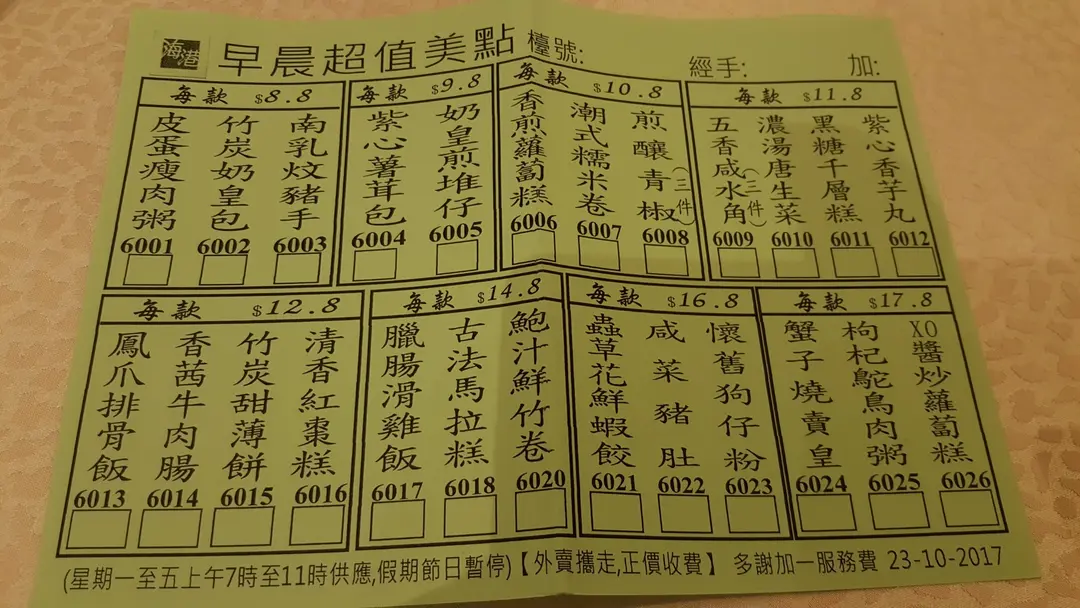 海港 早晨超值美點 檯號: 經手: 加:
每款 $8.8
皮蛋瘦肉粥 6001
竹炭奶皇包 6002
南乳炆豬手 6003
每款 $9.8
紫心薯茸包 6004
奶皇煎堆仔 6005
每款 $10.8
香煎蘿蔔糕 6006
潮式糯米卷 6007
煎釀青椒(三件) 6008
每款 $11.8
五香咸水角(三件) 6009
濃湯唐生菜 6010
黑糖千層糕 6011
紫心香芋丸 6012
每款 $12.8
鳳爪排骨飯 6013
香茜牛肉腸 6014
竹炭甜薄餅 6015
清香紅棗糕 6016
每款 $14.8
臘腸滑雞飯 6017
古法馬拉糕 6018
鮑汁鮮竹卷 6020
每款 $16.8
蟲草花鮮蝦餃 6021
咸菜豬肚 6022
懷舊狗仔粉 6023
每款 $17.8
蟹子燒賣皇 6024
枸杞鴕鳥肉粥 6025
XO醬炒蘿蔔糕 6026
(星期一至五上午7時至11時供應,假期節日暫停)【外賣攜走,正價收費】 多謝加一服務費 23-10-2017